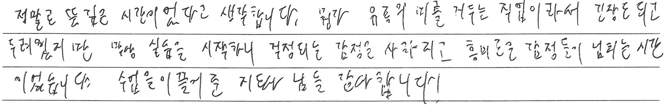 정말로 뜻깊은 시간이었다고 생각합니다. 뭔가 유종의 미를 거두는 직업이라서 긴장도 되고
두려웠지만 막상 실습을 시작하니 걱정되는 감정은 사라지고 흥미로운 감정들이 넘치는 시간
이었습니다. 수업을 이끌어 준 지도사 님들 감사합니다!